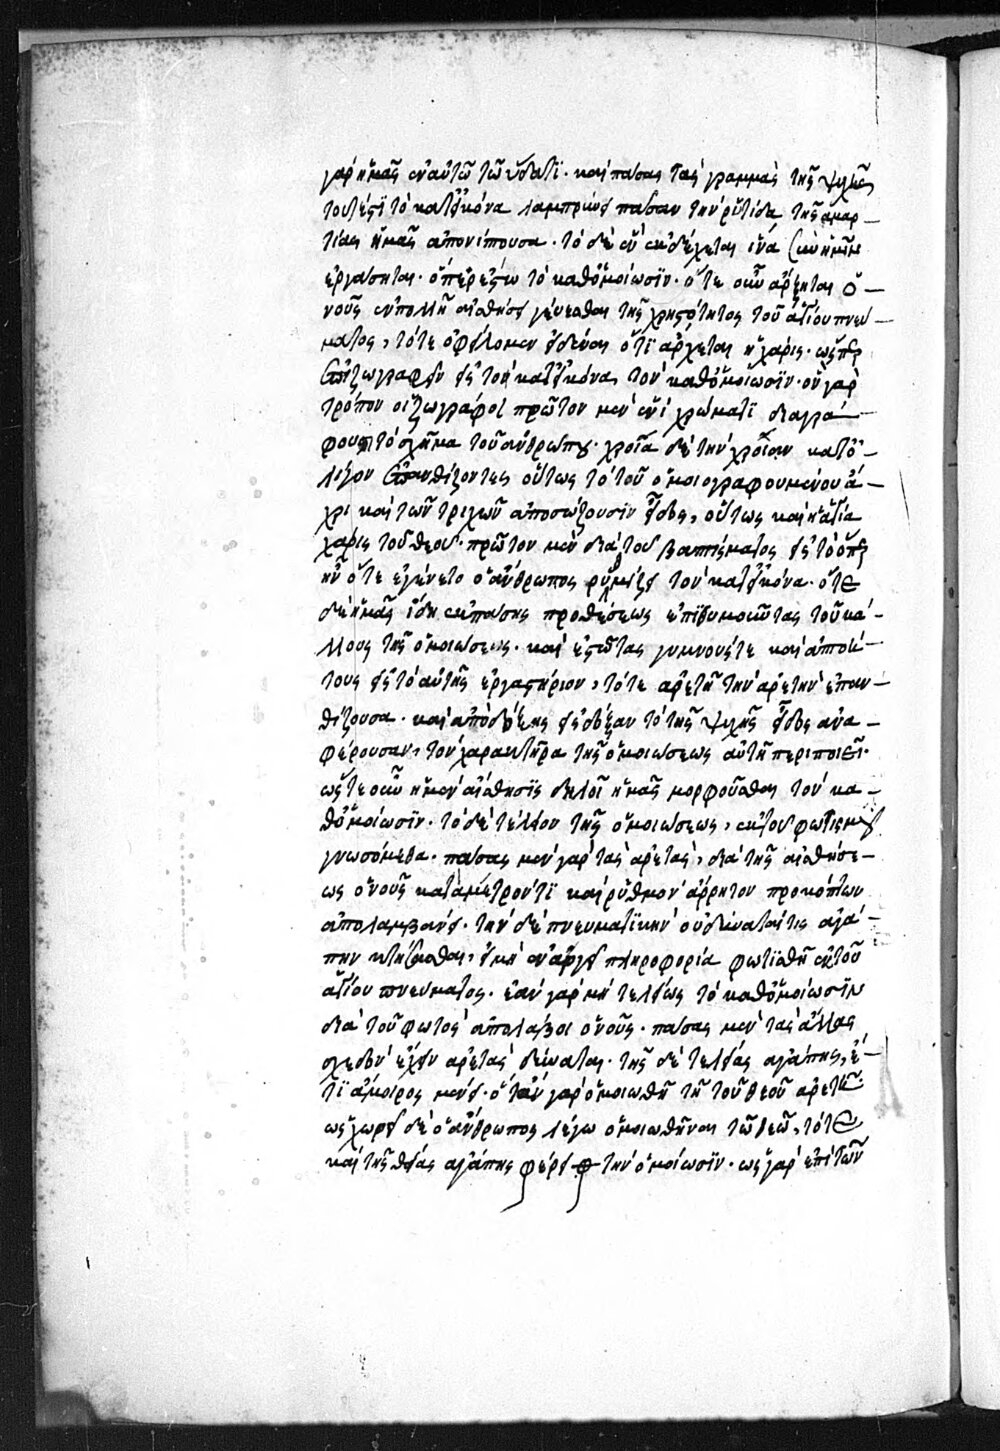 γὰρ ἡμᾶς ἐν αὐτῶ τῶ ὕδατι· καὶ πάσας τὰς γραμμὰς τῆς ψυχῆς
τουτέστι τὸ κατεἰκόνα λαμπρύνει πᾶσαν τὴν ρυτίδα τῆς ἁμαρ–
τίας ἡμᾶς ἀπονίπτουσα· τὸ δὲ ἓν ἐκδέχεται ἵνα σὺν ἡμῖν
ἐργάσηται· ὅπερ ἐστὶ τὸ καθομοίωσιν· ὅτε οὖν ἄρξηται ὁ–
νοῦς ἐν πολλῆ αἰσθήσει γεύεσθαι τῆς χρηστότητος τοῦ ἁγίου πνεύ–
ματος, τότε ὀφείλομεν εἰδέναι ὅτι ἄρχεται ἡ χάρις· ὥσπερ
ἐπιζωγραφεῖν εἰς τὸ κατεἰκόνα τὸν καθομοίωσιν· ὃν γὰρ
τρόπον οἱ ζωγράφοι πρῶτον μὲν ἑνὶ χρώματι διαγρά–
φουσι τὸ σχῆμα τοῦ ἀνθρώπου· χροῖα δὲ τὴν χροῖαν κατό–
λίγον ἐπανθίζοντες οὕτως τὸ τοῦ ὁμοιογραφουμένου ἄ–
χρι καὶ τῶν τριχῶν ἀποσώζουσιν εἶδος, οὕτως καὶ ἡ ἁγία
χάρις τοῦ θεοῦ· πρῶτον μὲν διὰ τοῦ βαπτίσματος εἰς τὸ ὅπερ
ἦν ὅτε ἐγένετο ὁ ἄνθρωπος ρυθμίζει τὸν κατεἰκόνα· ὅτε
δὲ ἡμᾶς ἴδη ἐκ πάσης προθέσεως ἐπιθυμοῦντας τοῦ κά–
λλους τῆς ὁμοιώσεως· καὶ ἑστῶτας γυμνούς τε καὶ ἀπτοή–
τους εἰς τὸ αὐτῆς ἐργαστήριον, τότε ἀρετῆ τὴν ἀρετὴν ἐπαν–
θίζουσα· καὶ ἀπὸ δόξης εἰς δόξαν τὸ τῆς ψυχῆς εἶδος ἀνα–
φέρουσαν, τὸν χαρακτῆρα τῆς ὁμοιώσεως αὐτῆ περιποιεῖ·
ὥστε οὖν ἡ μὲν αἴσθησις δηλοῖ ἡμᾶς μορφοῦσθαι τὸν κα–
θομοίωσιν· τὸ δὲ τέλειον τῆς ὁμοιώσεως, ἐκ τοῦ φωτισμοῦ
γνωσόμεθα· πάσας μὲν γὰρ τὰς ἀρετὰς, διὰ τῆς αἰσθήσε–
ως ὁ νοῦς κατὰ μέτρον τὶ καὶ ρυθμὸν ἄρρητον προκόπτων
ἀπολαμβάνει· τὴν δὲ πνευματικὴν οὐ δύναταί τις ἀγά–
πην κτήσασθαι, εἰ μὴ ἐν πάση πληροφορία φωτισθῆ ἐκ τοῦ
ἁγίου πνεύματος· ἐὰν γὰρ μὴ τελείως τὸ καθομοίωσιν
διὰ τοῦ φωτὸς ἀπολάβοι ὁ νοῦς· πάσας μὲν τὰς ἄλλας
σχεδὸν ἔχειν ἀρετὰς δύναται· τῆς δὲ τελείας ἀγάπης, ἔ–
τι ἄμοιρος μένει· ὅταν γὰρ ὁμοιωθῆ τῆ τοῦ θεοῦ ἀρετῆ·
ὡς χωρεῖ δὲ ὁ ἄνθρωπος λέγω ὁμοιωθῆναι τῶ θεῶ, τότε
καὶ τῆς θείας ἀγάπης φέρει τὴν ὁμοίωσιν· ὡς γὰρ ἐπὶ τῶν